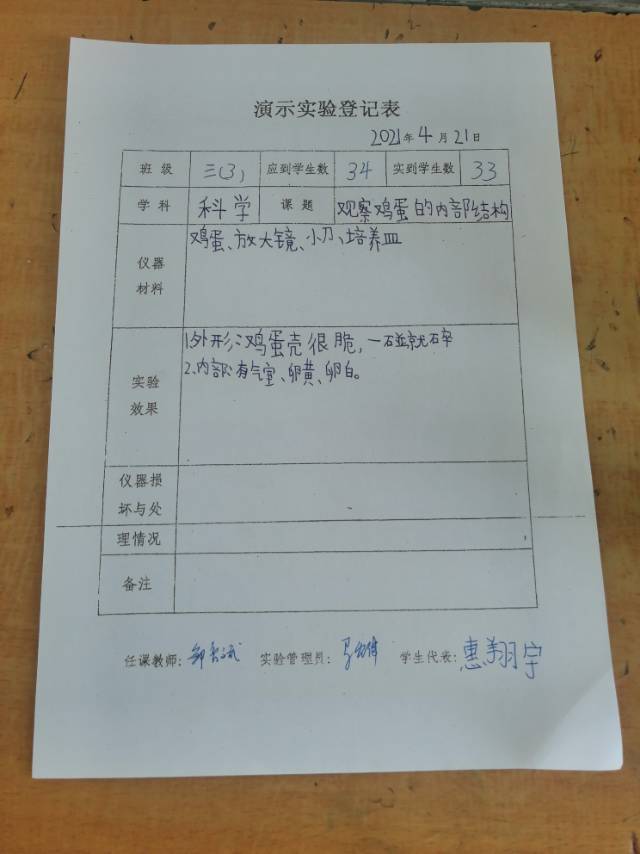 演示实验登记表
2021年4月21日
班级 三(3) 应到学生数 34 实到学生数 33
学科 科学 课题 观察鸡蛋的内部结构
仪器材料 鸡蛋、放大镜、小刀、培养皿
实验效果 1.外形:鸡蛋壳很脆,一碰就碎
2.内部:有气室、卵黄、卵白。
仪器损
坏与处
理情况
备注
任课教师: 实验管理员: 学生代表:惠翔宇